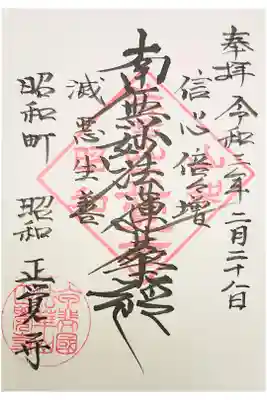 奉拝 令和二年二月二十八日
信心倍増
南無妙法蓮華経
滅悪生善
昭和町 昭和 正覚寺